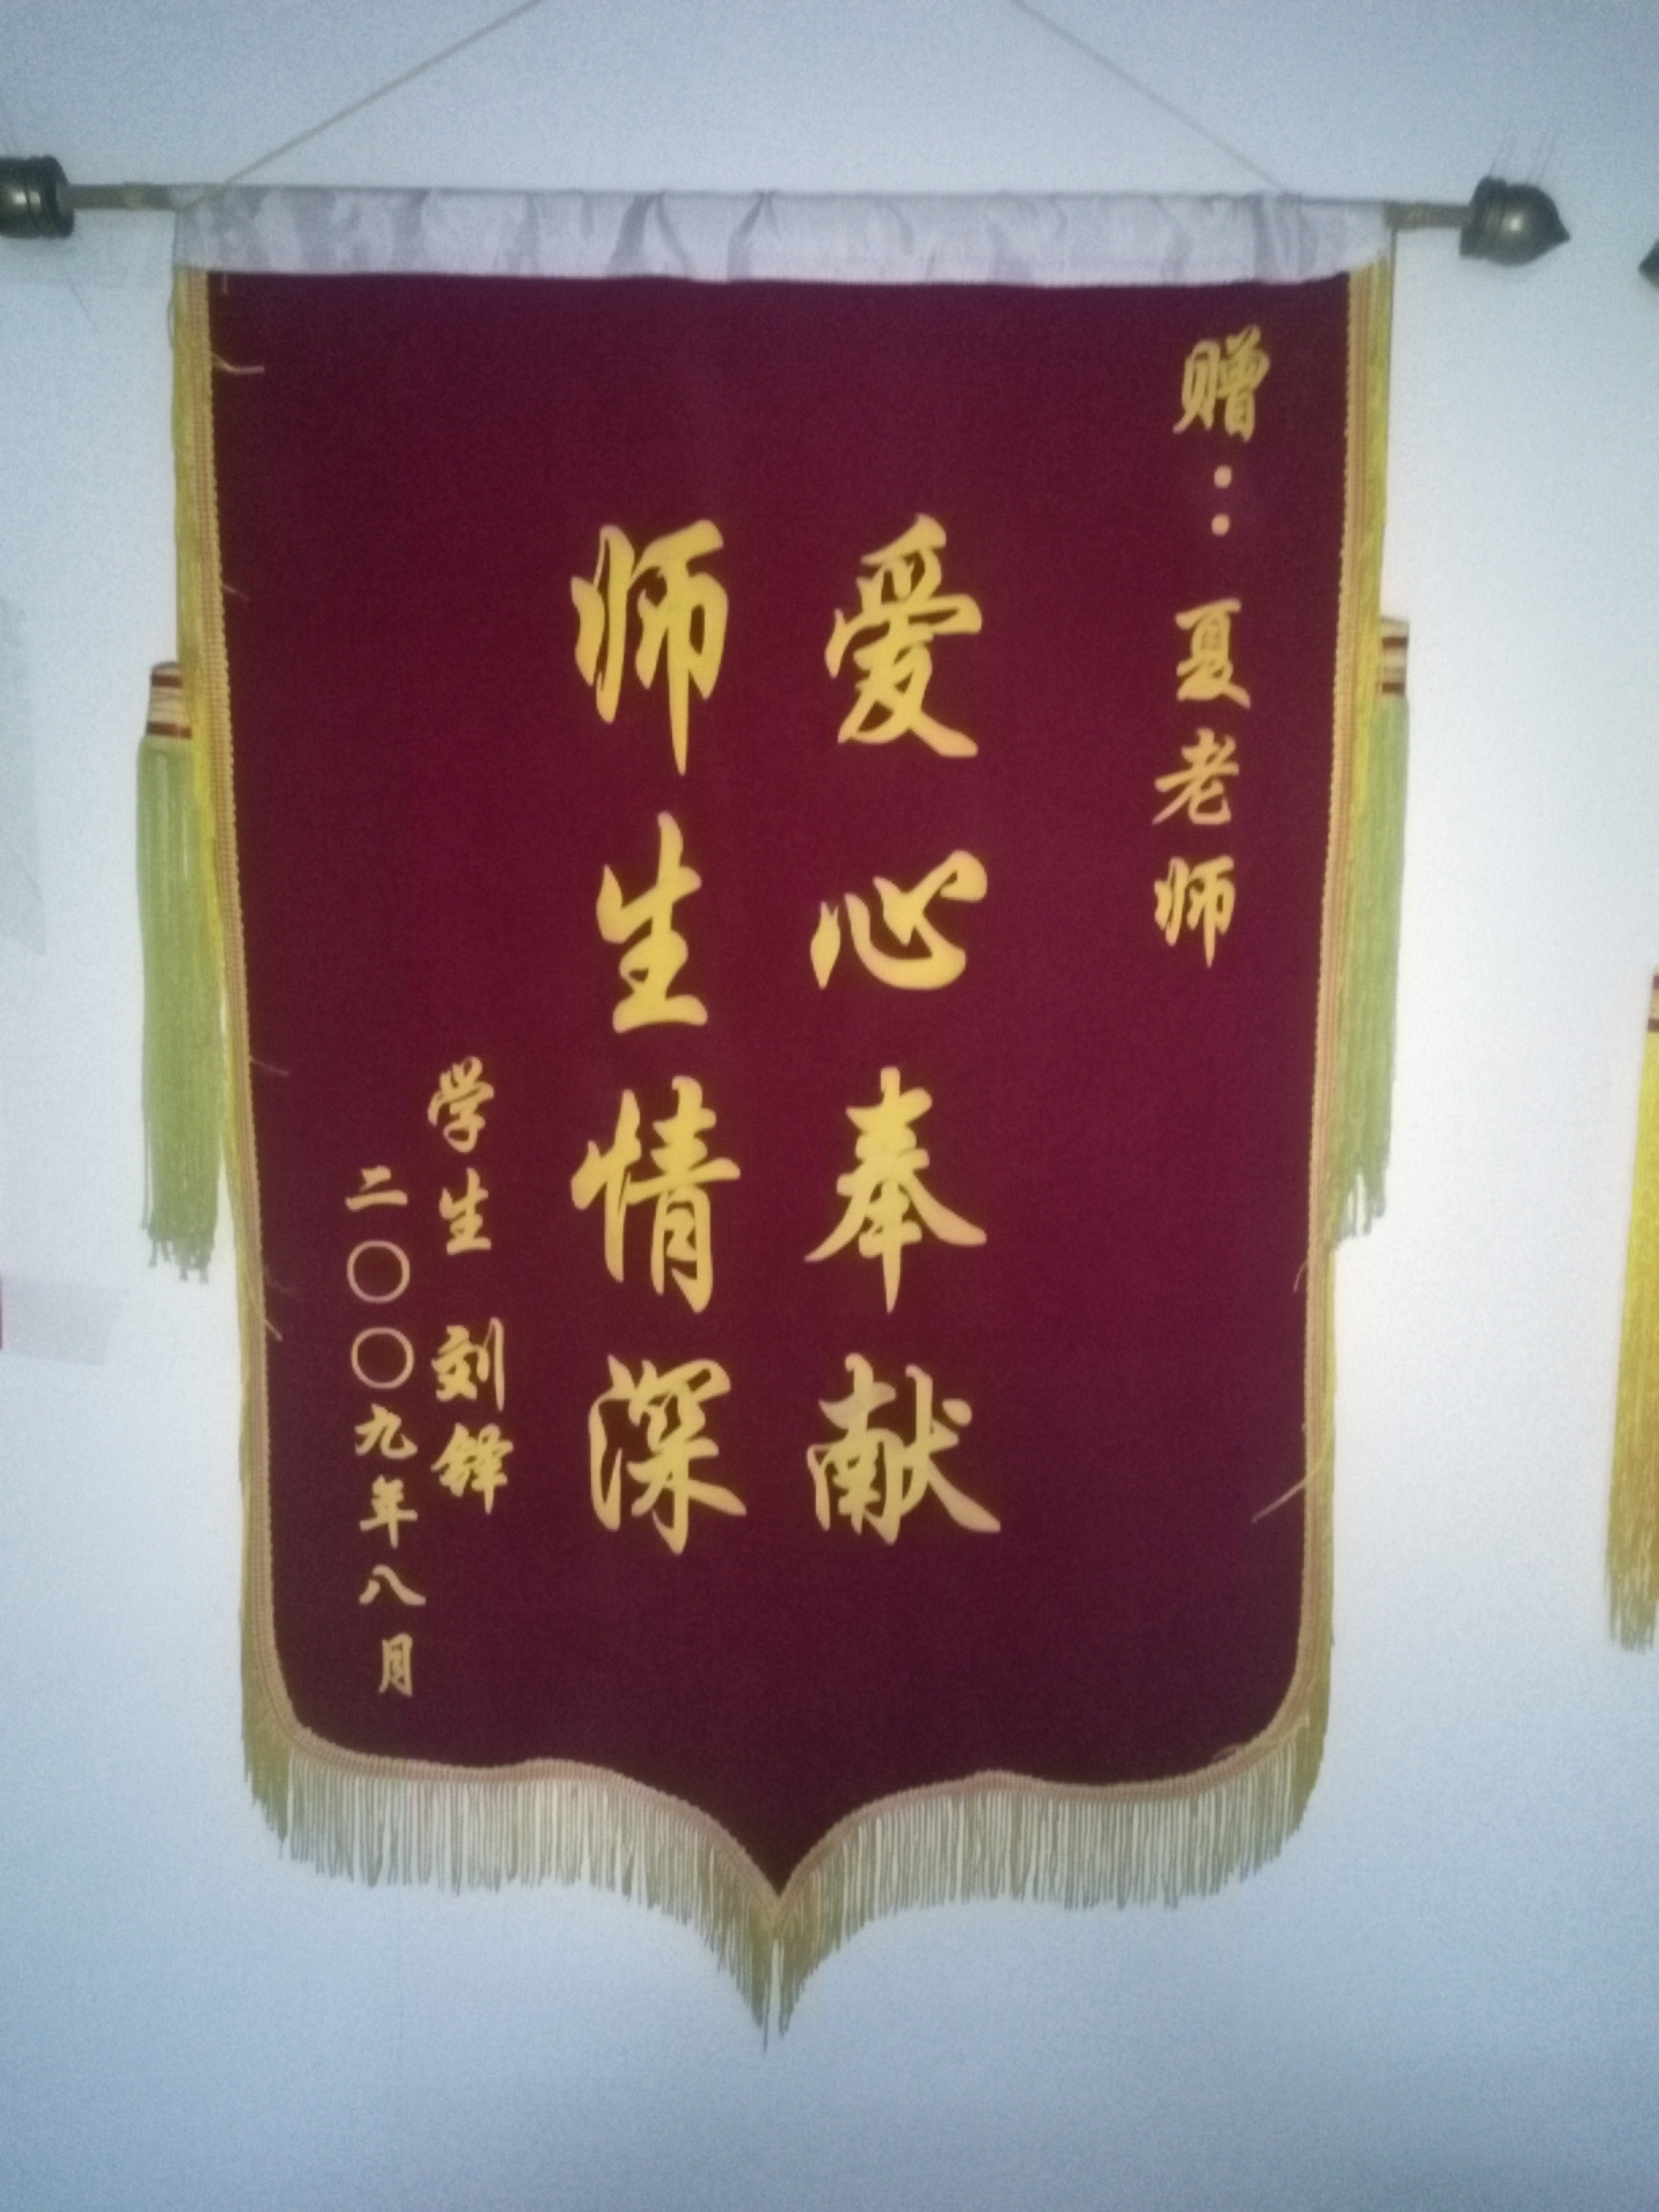 赠：夏老师
爱心奉献
师生情深
学生 刘铎
二〇〇九年八月